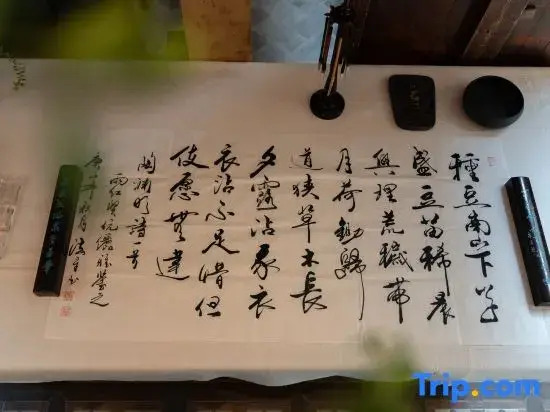 種豆南山下草
盛豆苗稀晨
興理荒穢帶
月荷鋤歸
道狹草木長
夕露沾我衣
衣沾不足惜但
使愿無違
陶渊明詩一首
Trip.com